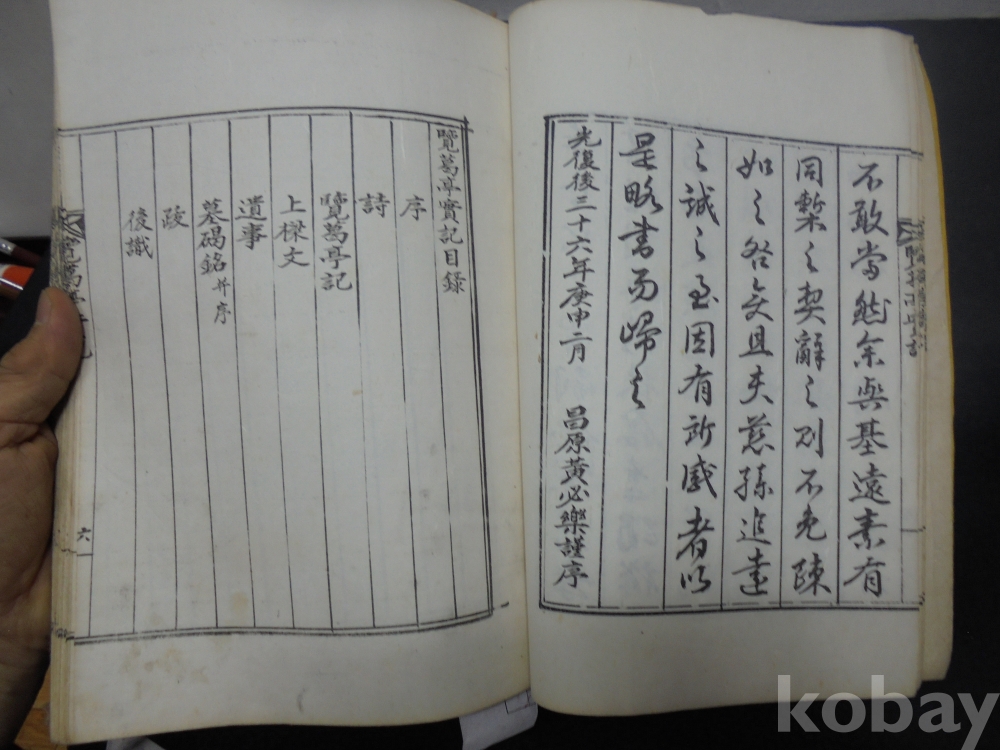 不敢當然余與基遠素有
同槧之契辭之則不免疎
如之咎矣且夫慈孫追遠
之誠之至因有所感者以
是略書而歸之
光復後三十六年庚申二月 昌原黃必樂謹序
覽葛亭實記目錄
序
詩
覽葛亭記
上樑文
遺事
墓碣銘并序
跋
後識
六
kobay